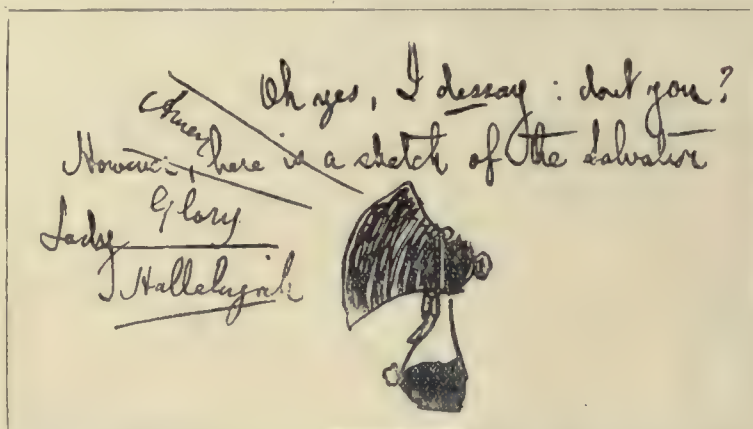 Oh yes, I dessay : don't you?
However, here is a sketch of the Salvation
Lady
Amen
Glory
Hallelujah